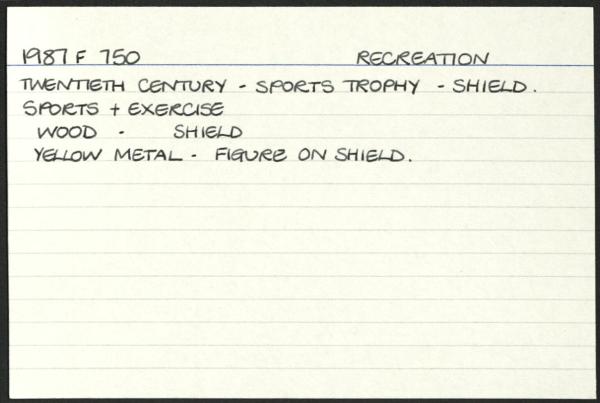 1987 F 750 RECREATION
TWENTIETH CENTURY - SPORTS TROPHY - SHIELD.
SPORTS + EXERCISE
WOOD - SHIELD
YELLOW METAL - FIGURE ON SHIELD.